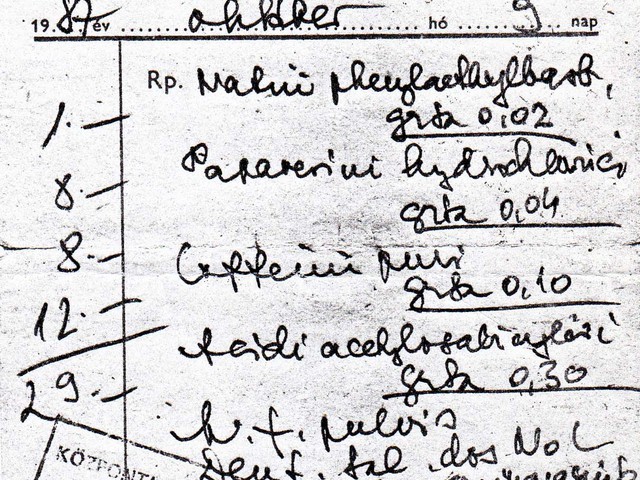 1987 év október hó 9 nap
Rp. Natrii phenylaethylbarb.
1.— grta 0,02
Papaverini hydrochlorici
8.— grta 0,04
8.— Coffeini puri
grta 0,10
12.—
Acidi acetylosalicylici
29.— grta 0,30
M. f. pulvis
Dent. tal. dos No L
KÖZPONTI